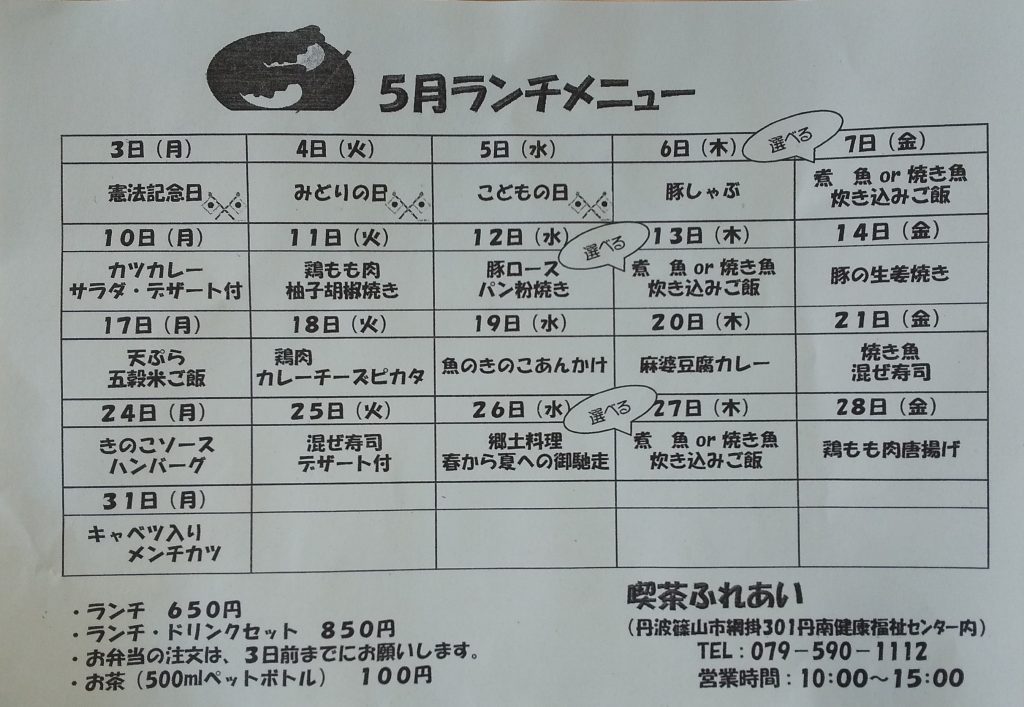 5月ランチメニュー
3日（月） 4日（火） 5日（水） 6日（木） 選べる 7日（金）
憲法記念日 みどりの日 こどもの日 豚しゃぶ 煮　魚 or 焼き魚
炊き込みご飯
10日（月） 11日（火） 12日（水） 選べる 13日（木） 14日（金）
カツカレー 鶏もも肉 豚ロース 煮　魚 or 焼き魚 豚の生姜焼き
サラダ・デザート付 柚子胡椒焼き パン粉焼き 炊き込みご飯
17日（月） 18日（火） 19日（水） 20日（木） 21日（金）
天ぷら 鶏肉 魚のきのこあんかけ 麻婆豆腐カレー 焼き魚
五穀米ご飯 カレーチーズピカタ 混ぜ寿司
24日（月） 25日（火） 26日（水） 選べる 27日（木） 28日（金）
きのこソース 混ぜ寿司 郷土料理 煮　魚 or 焼き魚 鶏もも肉唐揚げ
ハンバーグ デザート付 春から夏への御馳走 炊き込みご飯
31日（月）
キャベツ入り
メンチカツ
・ランチ　650円
・ランチ・ドリンクセット　850円
・お弁当の注文は、3日前までにお願いします。
・お茶（500mlペットボトル）　100円
喫茶ふれあい
（丹波篠山市網掛301丹南健康福祉センター内）
TEL：079－590－1112
営業時間：10:00～15:00